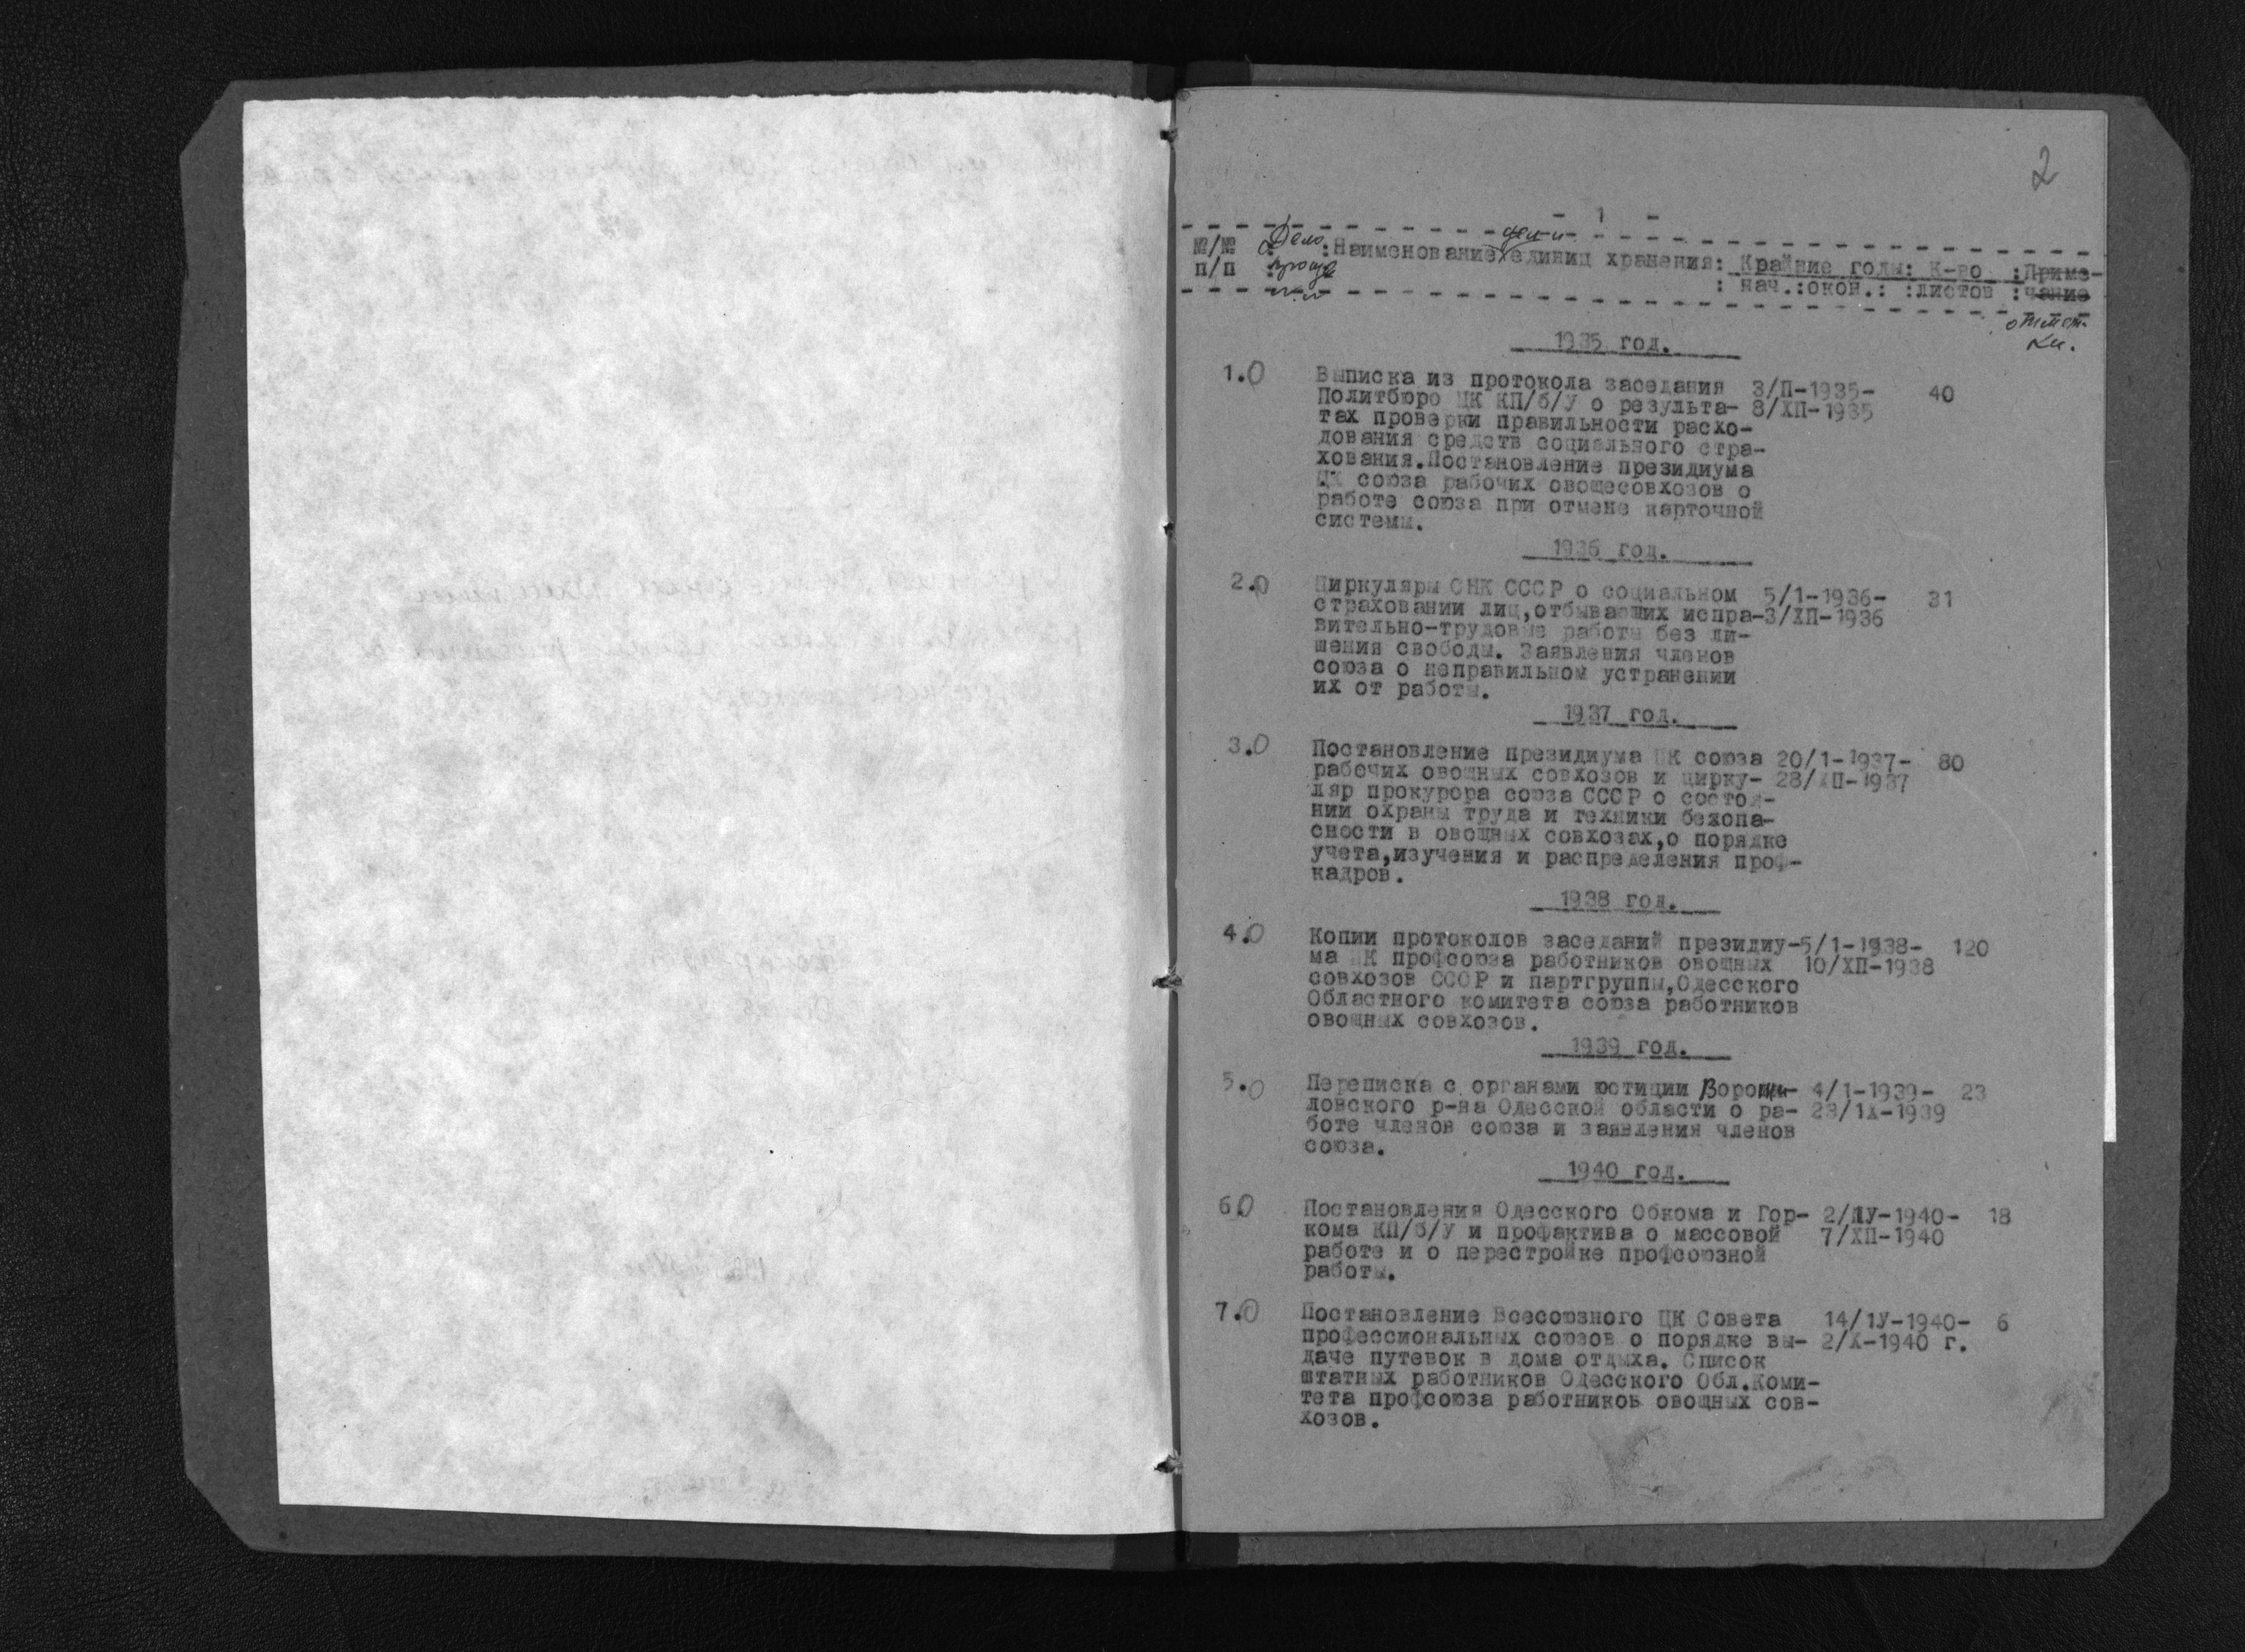 2
- 1 -
№/№ Дело :Наименование единиц хранения: Крайние годы: К-во :Приме-
п/п : нач.:окон.: :листов :чание
отмет-
ки.
1935 год.
1.0 Выписка из протокола заседания 3/П-1935- 40
Политбюро ЦК КП/б/У о результа- 8/ХП-1935
тах проверки правильности расхо-
дования средств социального стра-
хования.Постановление президиума
ЦК союза рабочих овощесовхозов о
работе союза при отмене карточной
системы.
1936 год.
2.0 Циркуляры СНК СССР о социальном 5/1-1936- 31
страховании лиц,отбывающих испра-3/ХП-1936
вительно-трудовые работы без ли-
шения свободы. Заявления членов
союза о неправильном устранении
их от работы.
1937 год.
3.0 Постановление президиума ЦК союза 20/1-1937- 80
рабочих овощных совхозов и цирку- 28/ХП-1937
ляр прокурора союза СССР о состоя-
нии охраны труда и техники безопа-
сности в овощных совхозах,о порядке
учета,изучения и распределения проф-
кадров.
1938 год.
4.0 Копии протоколов заседаний президиу-5/1-1938- 120
ма ЦК профсоюза работников овощных 10/ХП-1938
совхозов СССР и партгруппы,Одесского
Областного комитета союза работников
овощных совхозов.
1939 год.
5.0 Переписка с органами юстиции Вороши- 4/1-1939- 23
ловского р-на Одесской области о ра- 23/1Х-1939
боте членов союза и заявления членов
союза.
1940 год.
6.0 Постановления Одесского Обкома и Гор- 2/1У-1940- 18
кома КП/б/У и профактива о массовой 7/ХП-1940
работе и о перестройке профсоюзной
работы.
7.0 Постановление Всесоюзного ЦК Совета 14/1У-1940- 6
профессиональных союзов о порядке вы- 2/Х-1940 г.
даче путевок в дома отдыха. Список
штатных работников Одесского Обл.Коми-
тета профсоюза работников овощных сов-
хозов.